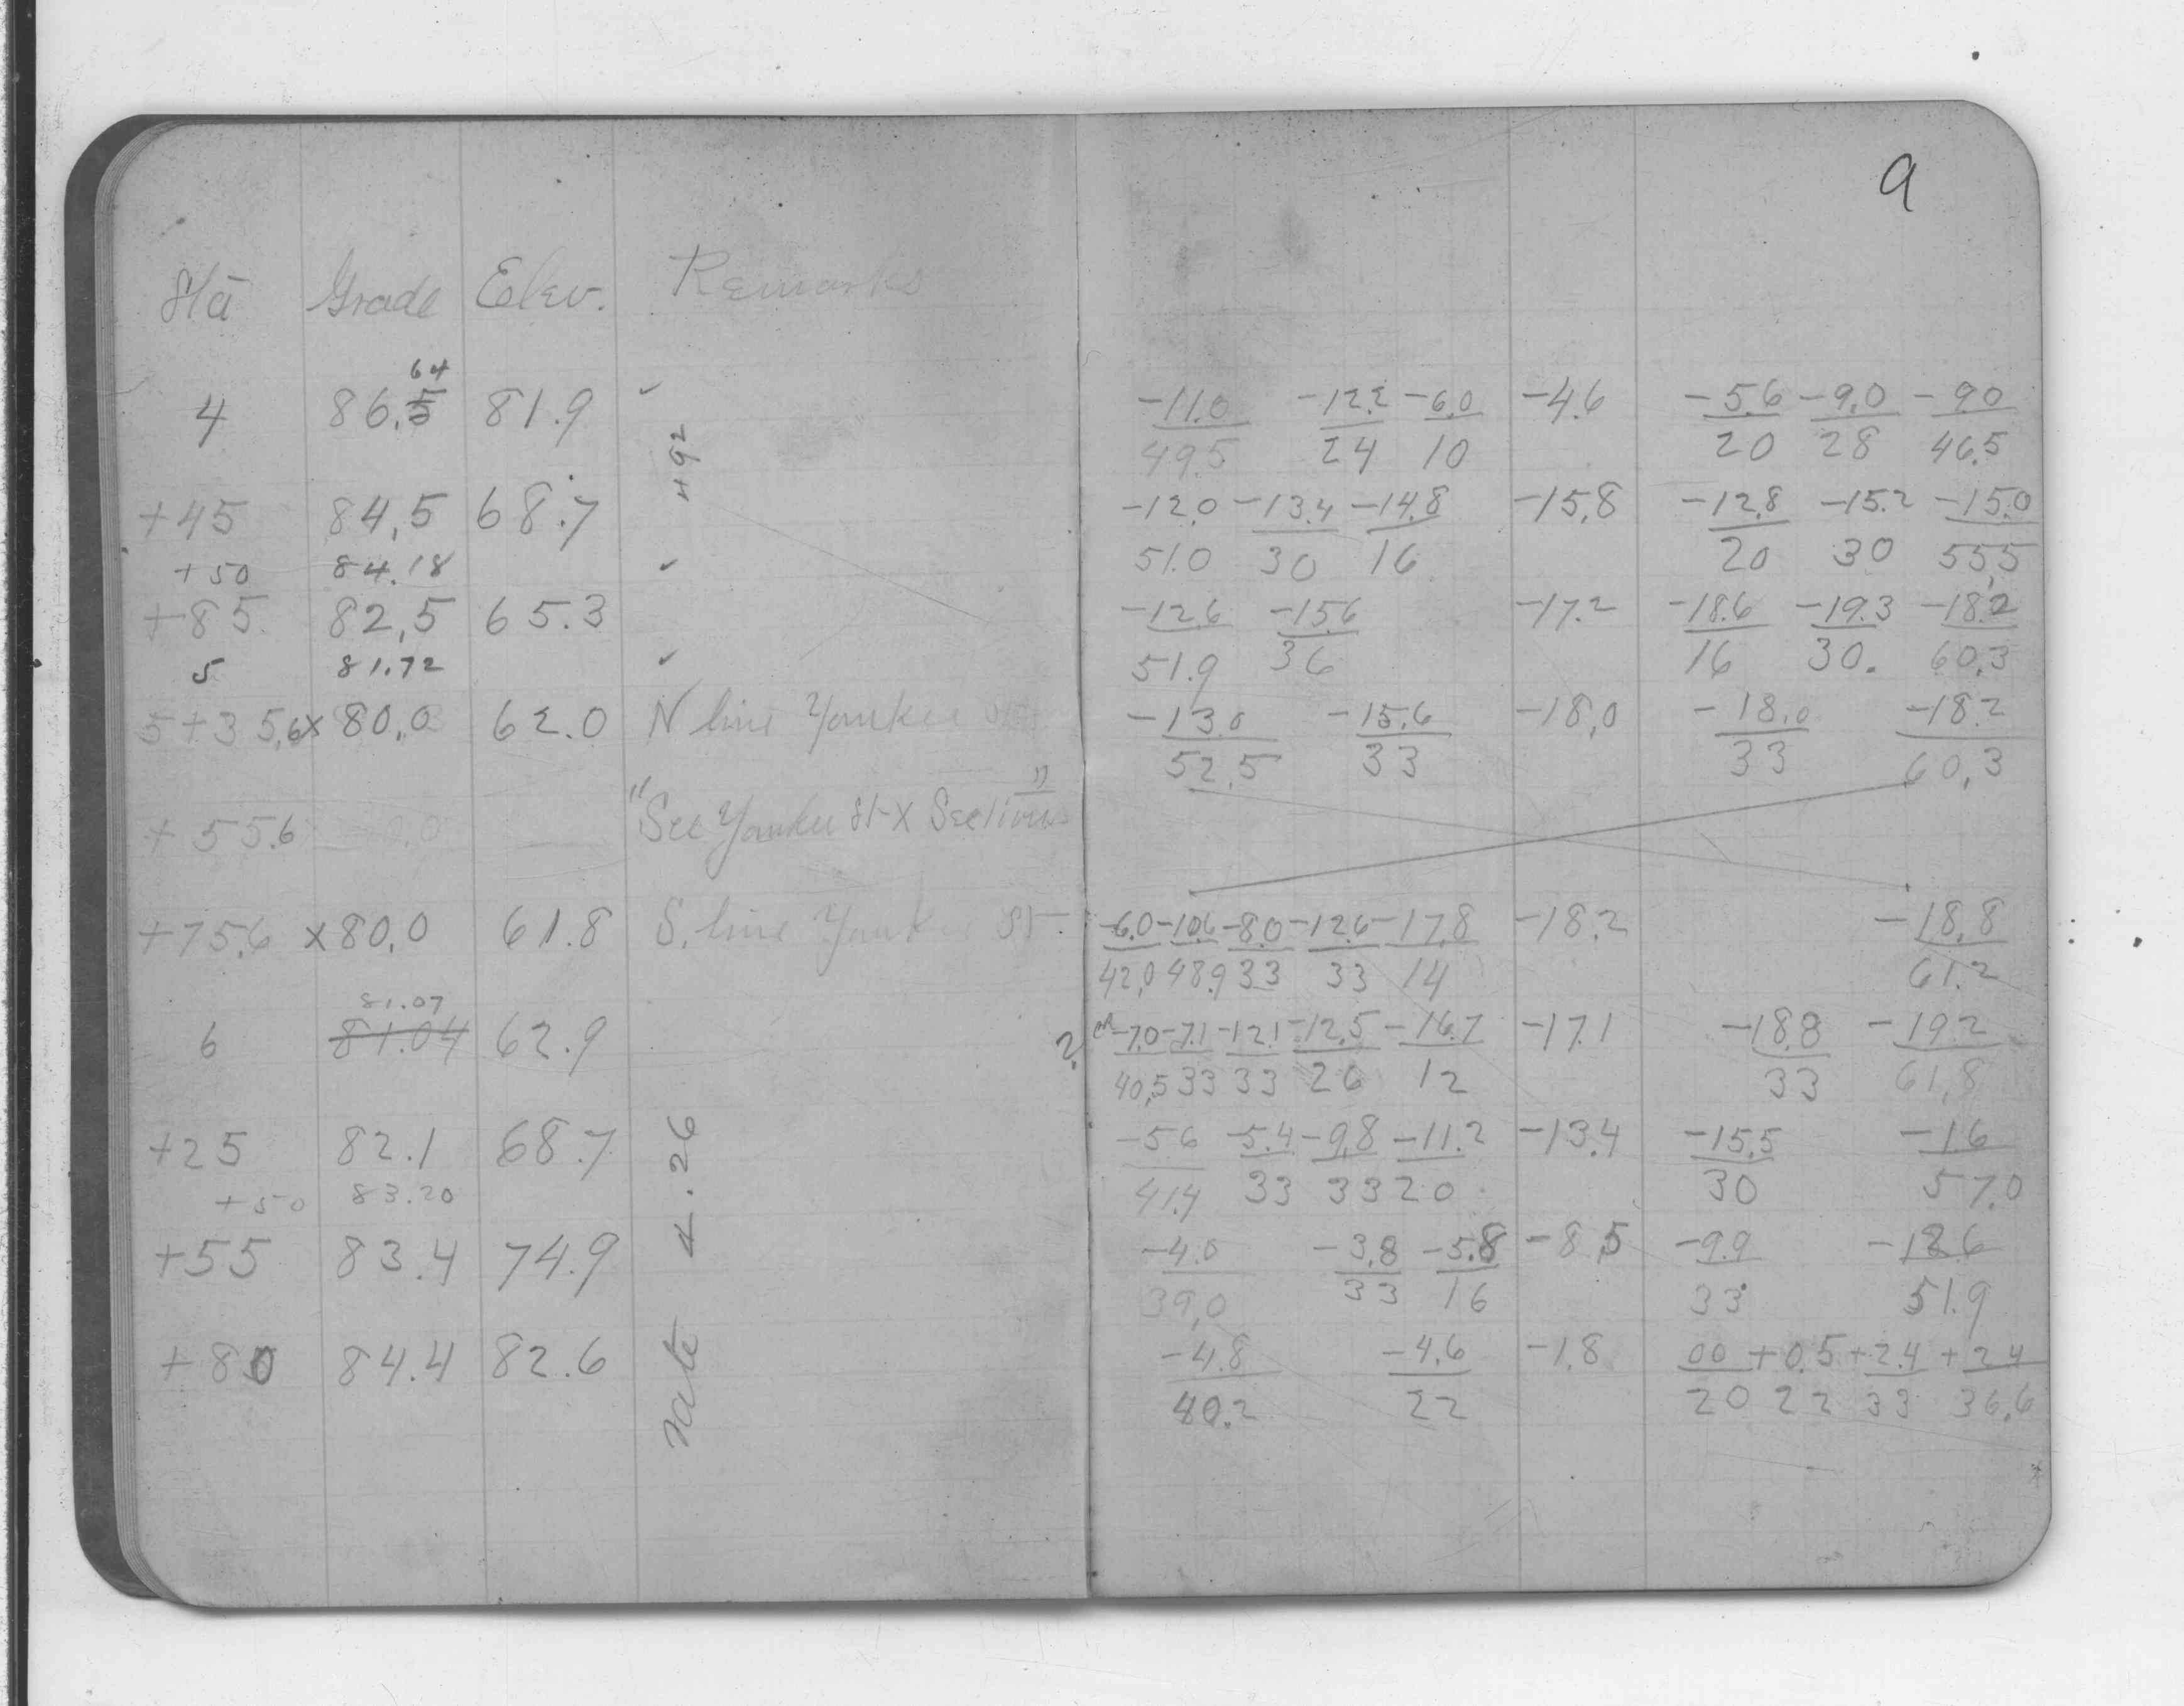 9
Sta Grade Elev. Remarks
64
4 86.5 81.9 -11.0 -12.2 -6.0 -4.6 -5.6 -9.0 -9.0
49.5 24 10 20 28 46.5
4.92
+45 84.5 68.7 -12.0 -13.4 -14.8 -15.8 -12.8 -15.2 -15.0
51.0 30 16 20 30 55.5
+50 84.18
+85 82.5 65.3 -12.6 -15.6 -17.2 -18.6 -19.3 -18.2
51.9 36 16 30. 60.3
5 81.72
5+35.6 x 80.0 62.0 N line Yankee St -13.0 -15.6 -18.0 -18.0 -18.2
52.5 33 33 60.3
+55.6 "See Yankee St X Sections"
+75.6 x 80.0 61.8 S. line Yankee St. -6.0 -10.6 -8.0 -12.6 -17.8 -18.2 -18.8
42.0 48.9 33 33 14 61.2
81.07
6 81.04 62.9 ? -7.0 -7.1 -12.1 -12.5 -16.7 -17.1 -18.8 -19.2
40.5 33 33 26 12 33 61.8
+25 82.1 68.7 -5.6 -5.4 -9.8 -11.2 -13.4 -15.5 -16
41.4 33 33 20 30 57.0
+50 83.20
rate 4.26
+55 83.4 74.9 -4.0 -3.8 -5.8 -8.5 -9.9 -12.6
39.0 33 16 33 51.9
+80 84.4 82.6 -4.8 -4.6 -1.8 00 +0.5 +2.4 +2.4
40.2 22 20 22 33 36.6